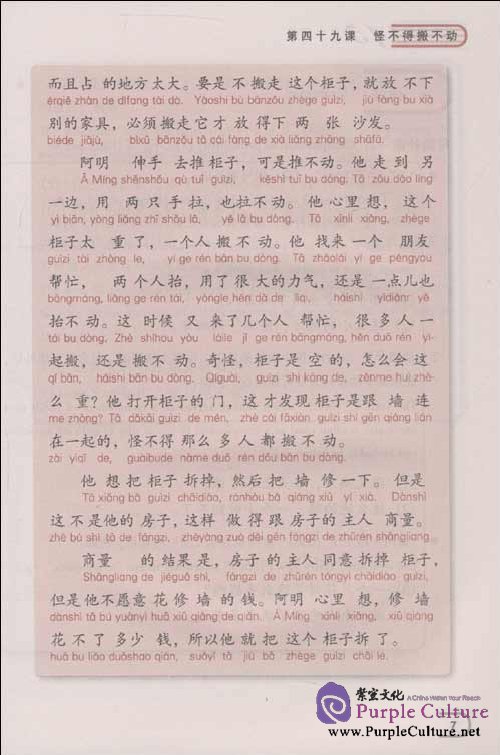 第四十九课 怪不得搬不动
而且占 的地方太大。要是不搬走这个柜子，就放不下
érqiě zhàn de dìfang tài dà. Yàoshi bù bānzǒu zhège guìzi, jiù fàng bu xià
别的家具，必须搬走它才放得下两 张 沙发。
biéde jiājù, bìxū bānzǒu tā cái fàng de xià liǎng zhāng shāfā.
阿明 伸手去推柜子，可是推不动。他走到另
Ā Míng shēnshǒu qù tuī guìzi, kěshì tuī bu dòng. Tā zǒu dào lìng
一边，用 两只手拉，也拉不动。他心里想，这个
yì biān, yòng liǎng zhī shǒu lā, yě lā bu dòng. Tā xīnli xiǎng, zhège
柜子太 重了，一个人搬不动。他 找来一个 朋友
guìzi tài zhòng le, yí ge rén bān bu dòng. Tā zhǎolái yí ge péngyou
帮忙， 两个人抬，用了很大的力气，还是一点儿也
bāngmáng, liǎng ge rén tái, yòngle hěn dà de lìqi, háishi yìdiǎnr yě
抬不动。这 时候 又来了几个人 帮忙，很多人一
tái bu dòng. Zhè shíhou yòu láile jǐ ge rén bāngmáng, hěn duō rén yì-
起搬，还是搬不动。奇怪，柜子是空的，怎么会这
qǐ bān, háishi bān bu dòng. Qíguài, guìzi shì kōng de, zěnme huì zhè-
么重？他打开柜子的门，这才发现柜子是跟 墙 连
me zhòng? Tā dǎkāi guìzi de mén, zhè cái fāxiàn guìzi shì gēn qiáng lián
在一起的，怪不得那么多人都搬不动。
zài yìqǐ de, guàibude nàme duō rén dōu bān bu dòng.
他 想把柜子拆掉，然后把墙修一下。但是
Tā xiǎng bǎ guìzi chāidiào, ránhòu bǎ qiáng xiū yí xià. Dànshì
这不是他的房子，这样 做得跟房子的主人 商量。
zhè bú shì tā de fángzi, zhèyàng zuò děi gēn fángzi de zhǔrén shāngliang.
商量 的结果是，房子的主人同意拆掉 柜子，
Shāngliang de jiéguǒ shì, fángzi de zhǔrén tóngyì chāidiào guìzi,
但是他不愿意花修墙的钱。阿明心里想，修墙
dànshì tā bú yuànyì huā xiū qiáng de qián. Ā Míng xīnli xiǎng, xiū qiáng
花不了多少 钱，所以他就把这个柜子拆了。
huā bu liǎo duōshao qián, suǒyǐ tā jiù bǎ zhège guìzi chāi le.
紫室文化 A China Within Your Reach
Purple Culture
www.PurpleCulture.net
7